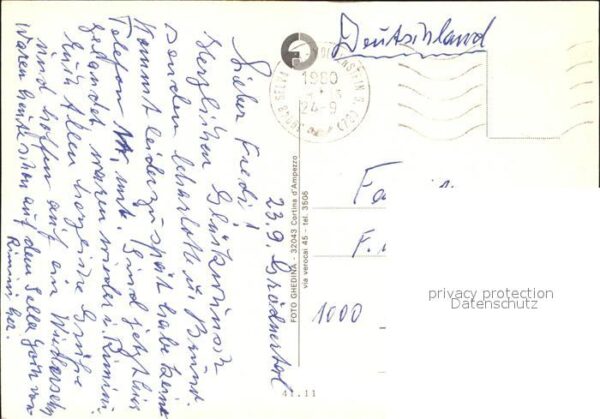 23.9. Grödnertal
Lieber Fredi!
Herzlichen Glückwunsch
senden u.
Kommt leider zu spät habe keine
Telefon Nr. mit. Sind jetzt hier
gelandet waren wieder i. Rimini.
Euch Allen herzliche Grüße
und hoffen auf ein Wiedersehn
Waren heute schon auf dem Sella Joch von
Rimini her.
FOTO GHEDINA - 32043 Cortina d'Ampezzo
via verocai 45 - tel. 3506
41.11
1980
24-9
Deutschland
Fa
F.
1000
privacy protection
Datenschutz